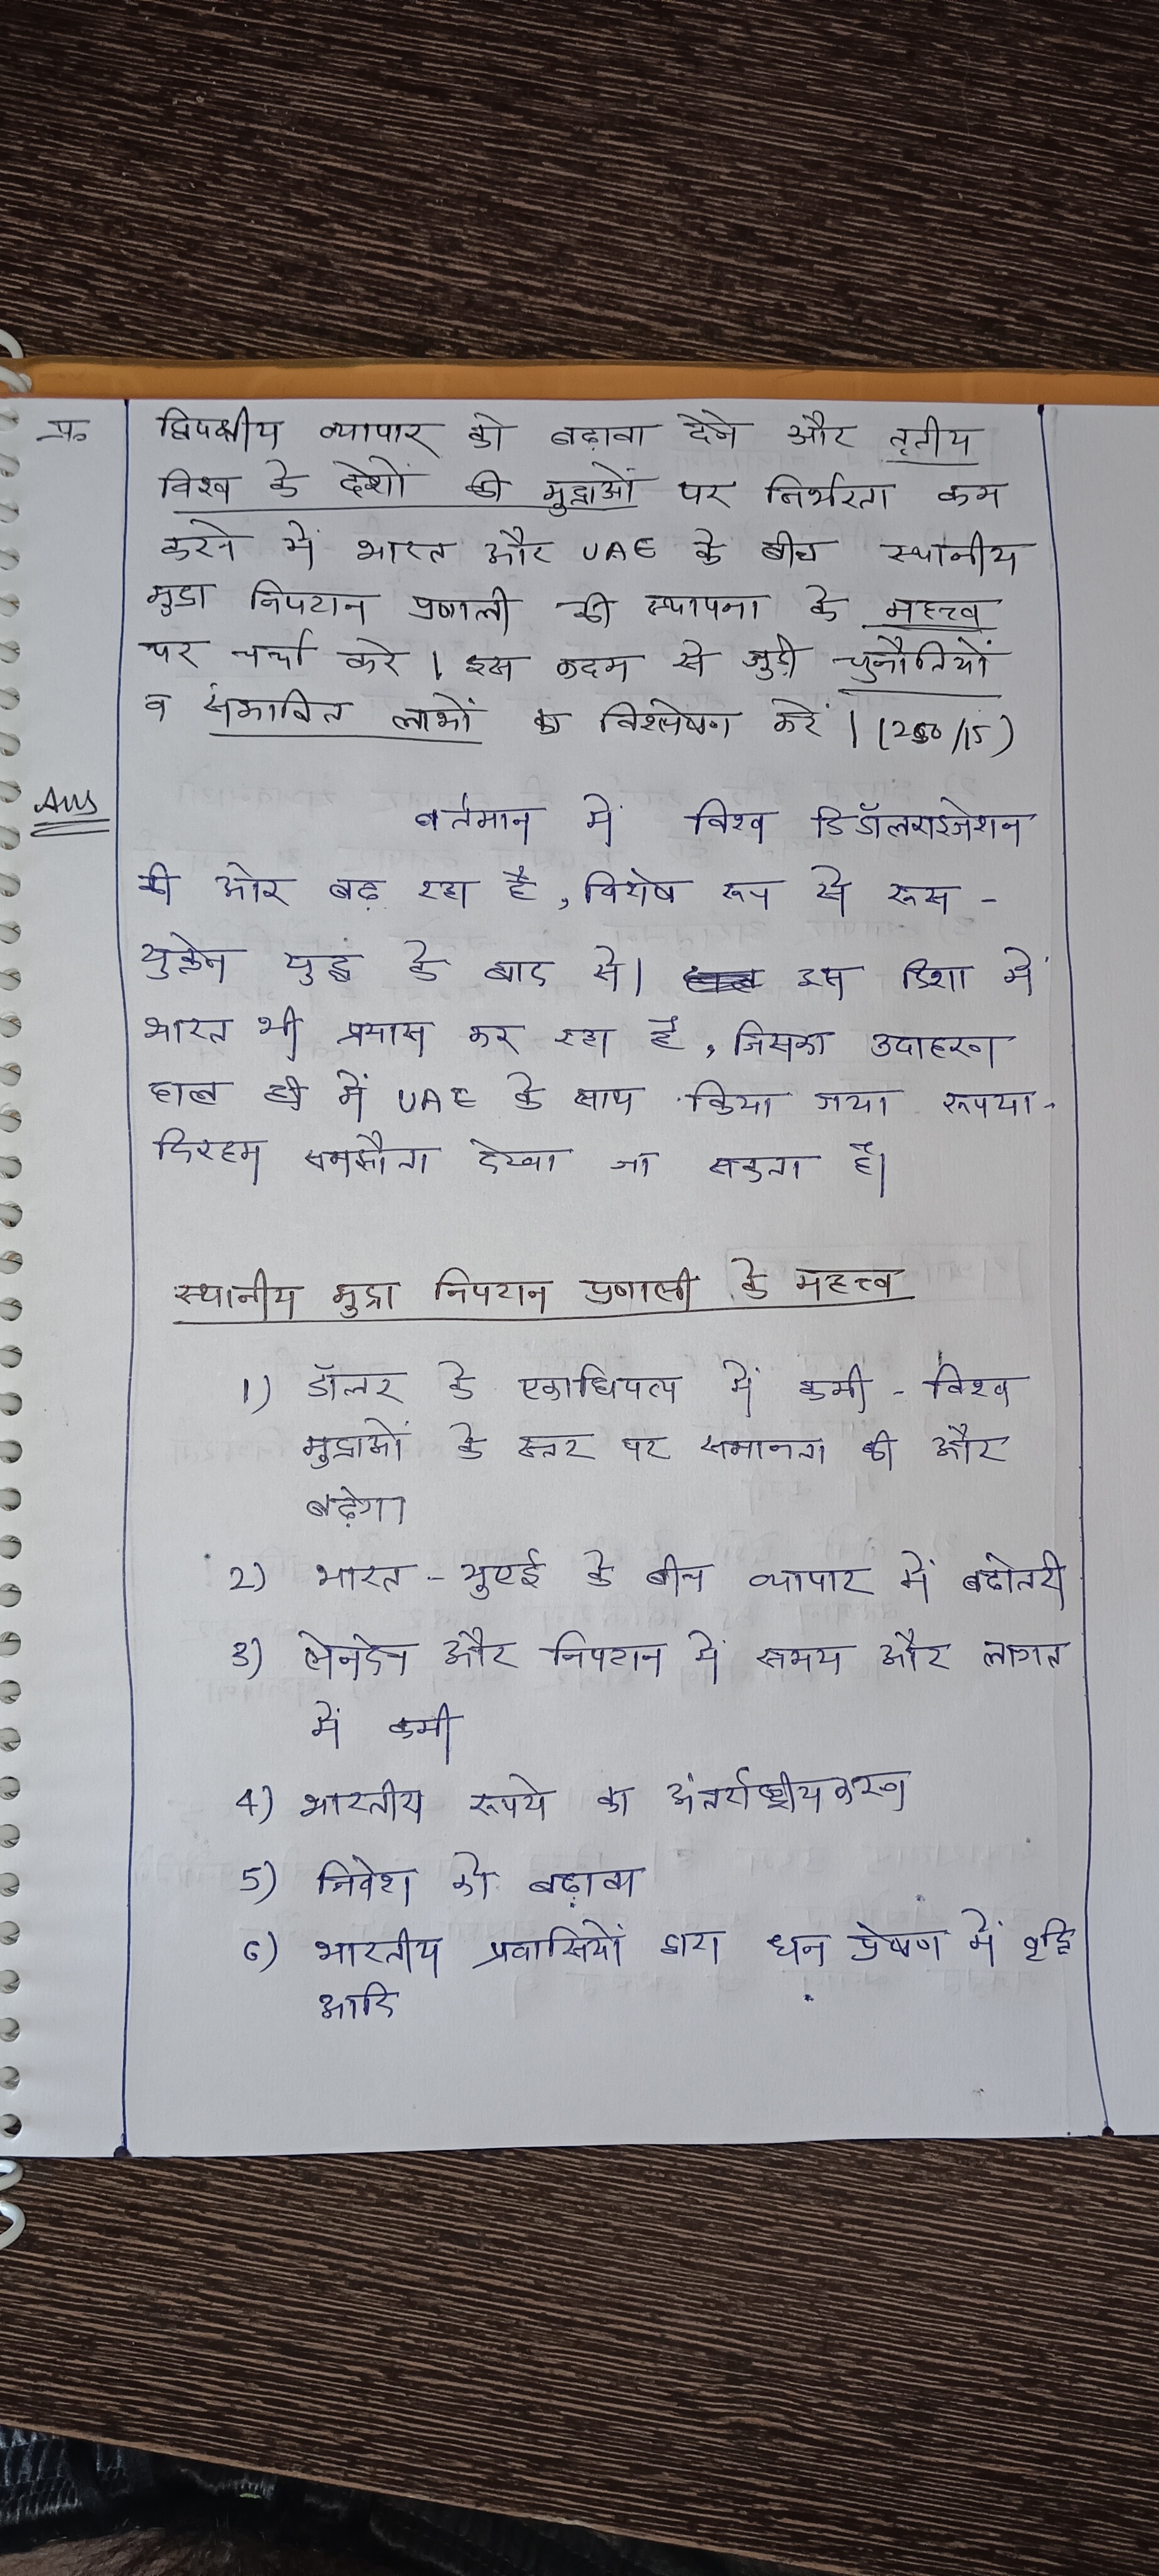 प्र० द्विपक्षीय व्यापार को बढ़ावा देने और तृतीय
विश्व के देशों की मुद्राओं पर निर्भरता कम
करने में भारत और UAE के बीच स्थानीय
मुद्रा निपटान प्रणाली की स्थापना के महत्त्व
पर चर्चा करे। इस कदम से जुड़ी चुनौतियों
व संभावित लाभों का विश्लेषण करें। (250/15)
Ans वर्तमान में विश्व डिडॉलराइजेशन
की ओर बढ़ रहा है, विशेष रूप से रूस -
युक्रेन युद्ध के बाद से। इस दिशा में
भारत भी प्रयास कर रहा है, जिसका उदाहरण
हाल ही में UAE के साथ किया गया रूपया-
दिरहम समझौता देखा जा सकता है।
स्थानीय मुद्रा निपटान प्रणाली के महत्त्व
1) डॉलर के एकाधिपत्य में कमी - विश्व
मुद्राओं के स्तर पर समानता की और
बढ़ेगा
2) भारत - युएई के बीच व्यापार में बढोतरी
3) लेनदेन और निपटान में समय और लागत
में कमी
4) भारतीय रूपये का अंतर्राष्ट्रीयकरण
5) निवेश को बढ़ावा
6) भारतीय प्रवासियों द्वारा धन प्रेषण में वृद्धि
आदि